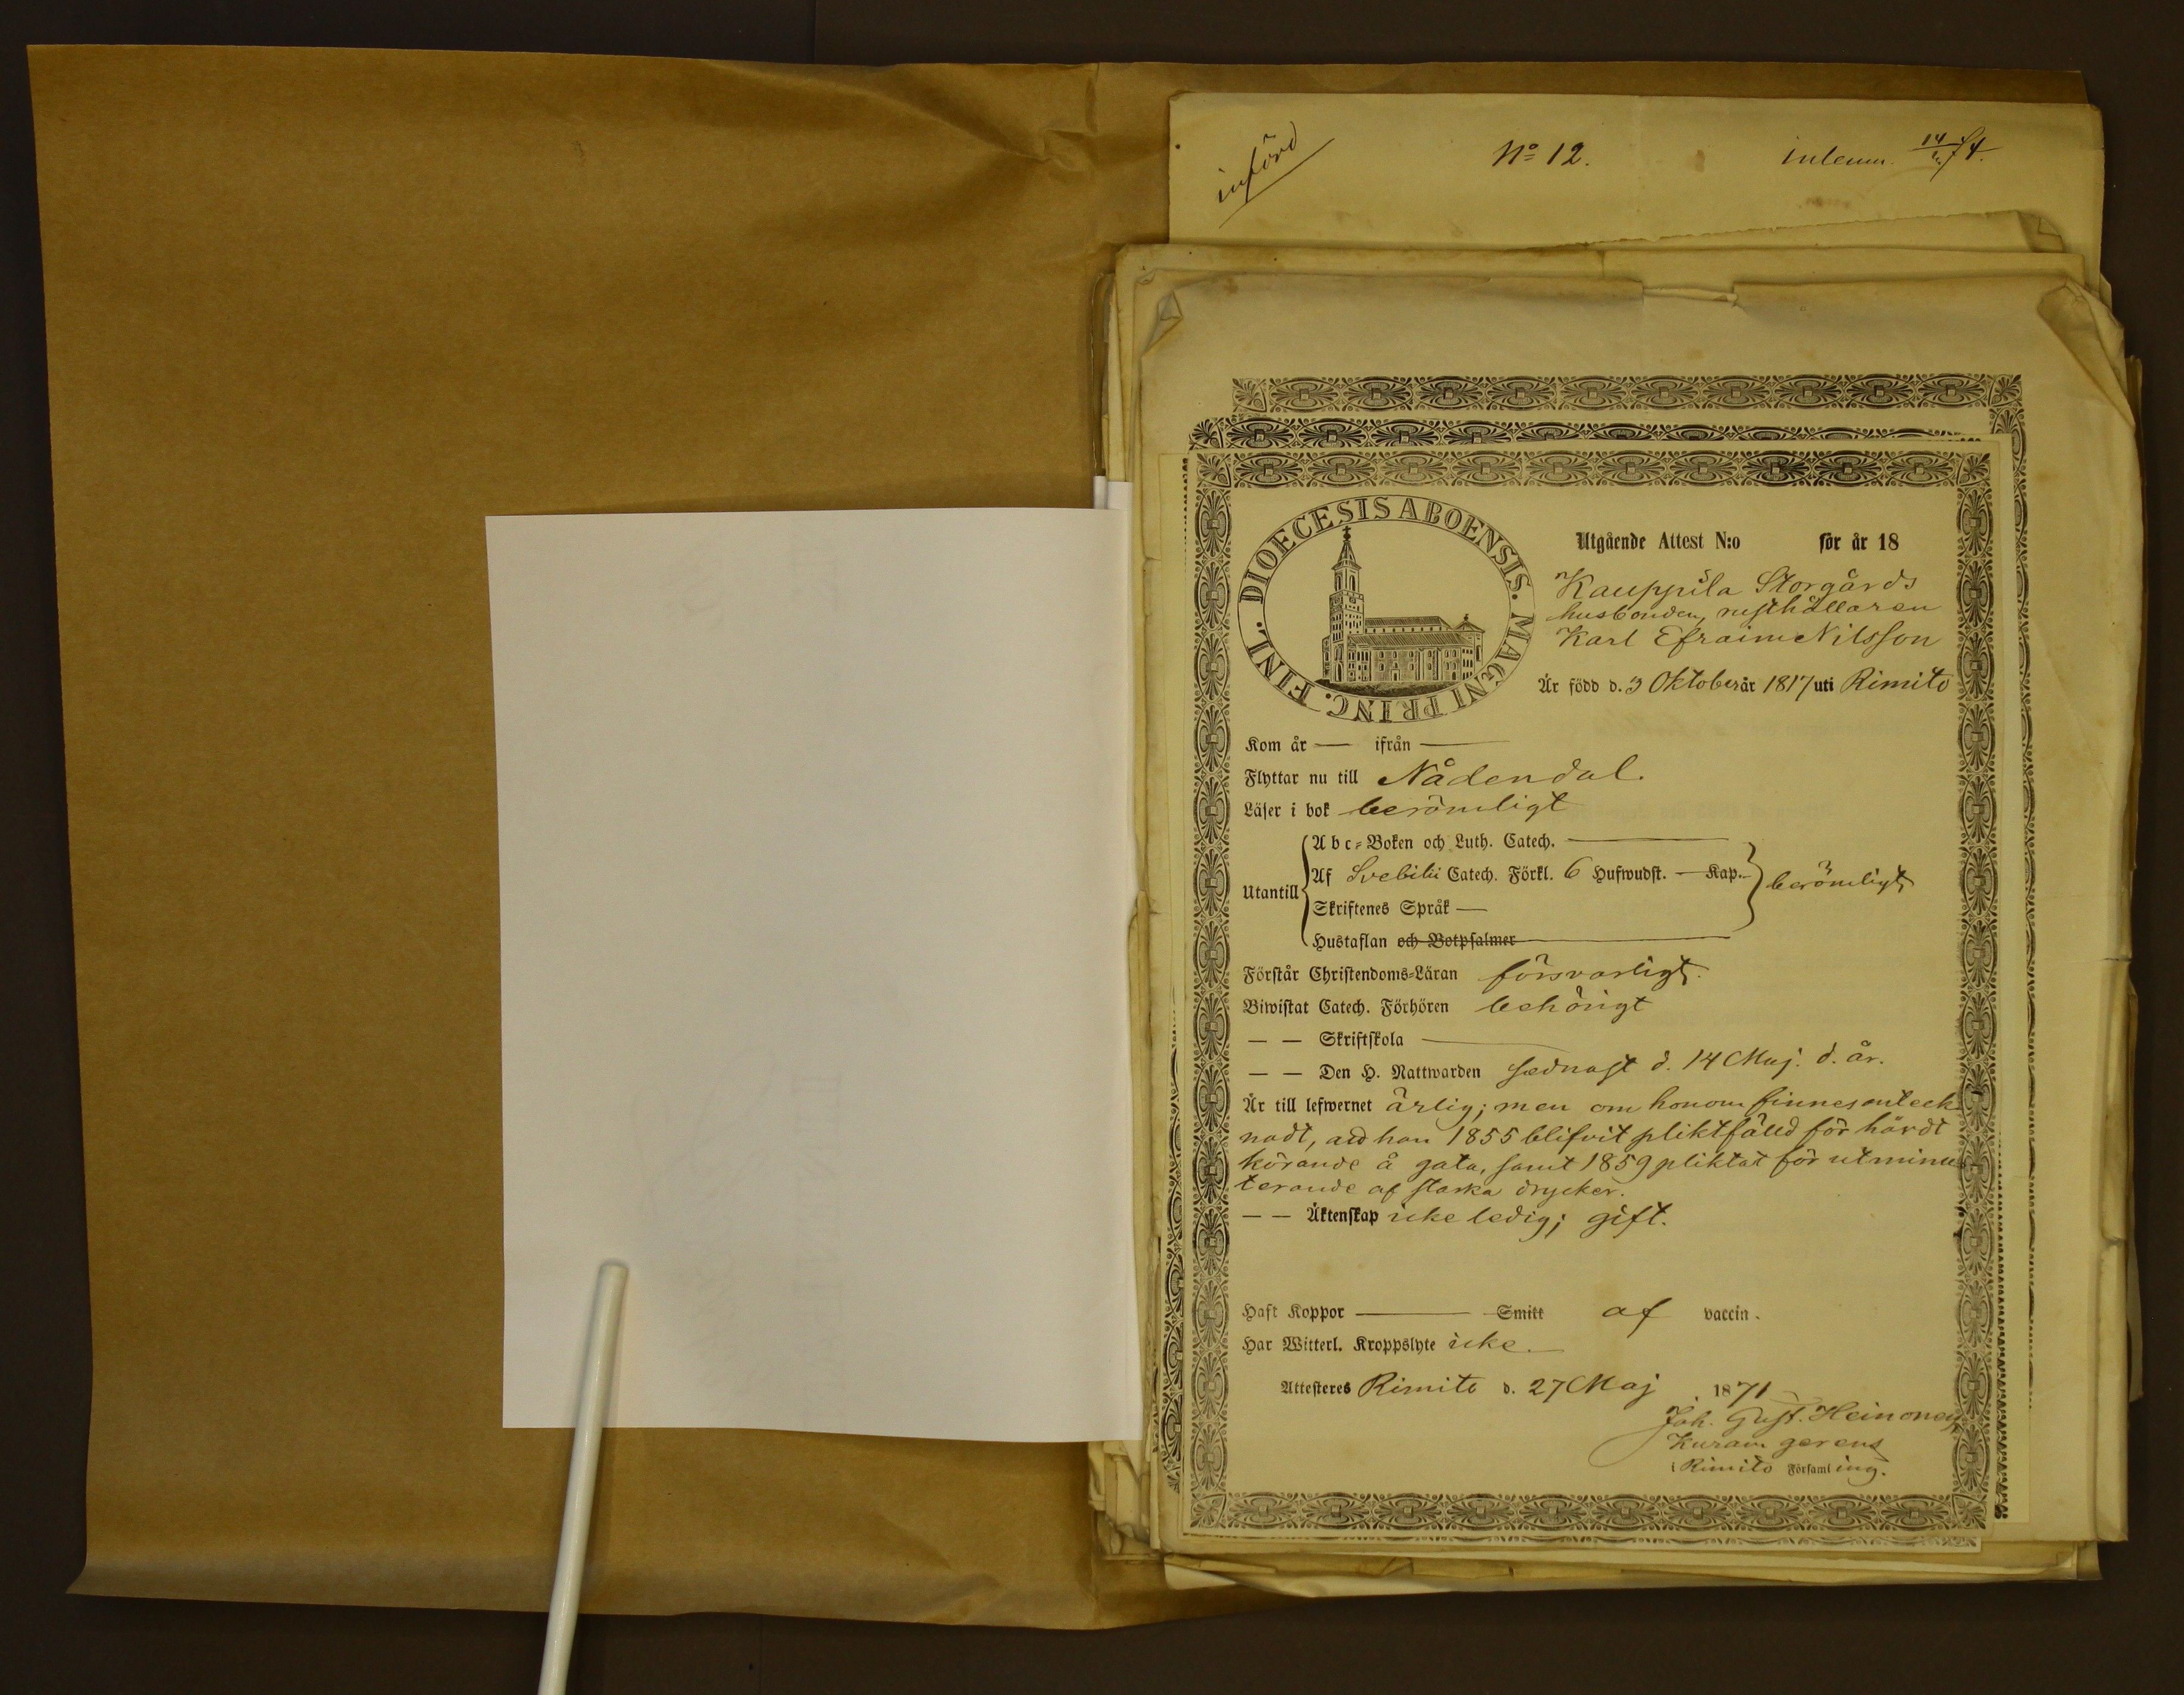 införd
No 12.
inlemn. 14/ 74.
DIOECESIS ABOENSIS. MAGNI PRINC. FINL.
Utgående Attest N:o för år 18
Kauppila Storgårds
husbonden, rusthållaren
Karl Efraim Nilsson
Är född d. 3 Oktober år 1817 uti Rimito
Kom år — ifrån —
Flyttar nu till Nådendal.
Läser i bok berömligt
Utantill
Abc-Boken och Luth. Catech. —
Af Svebilii Catech. Förkl. 6 Hufwudst. — Kap. —
Skriftenes Språk —
Hustaflan och Botpsalmer —
berömligt
Förstår Christendoms-Läran försvarligt.
Biwistat Catech. Förhören behörigt
— — Skriftskola —
— — Den H. Nattwarden sednast d. 14 Maj. d. år.
Är till lefwernet ärlig; men om honom finnes anteck-
nadt, att han 1855 blifvit pliktfälld för hårdt
körande å gata, samt 1859 pliktat för utminu-
terande af starka drycker.
— — Äktenskap icke ledig; gift.
Haft Koppor — Smitt af vaccin.
Har Witterl. Kroppslyte icke.
Attesteres Rimito d. 27 Maj 1871
Joh. Gust. Heinonen
Kuram gerens
i Rimito Församling.